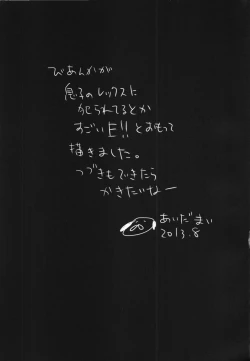 びあんかが
息子のレックスに
犯られてるとか
すごいE!!とおもって
描きました。
つづきもできたら
かきたいなー
あいだまい
2013.8